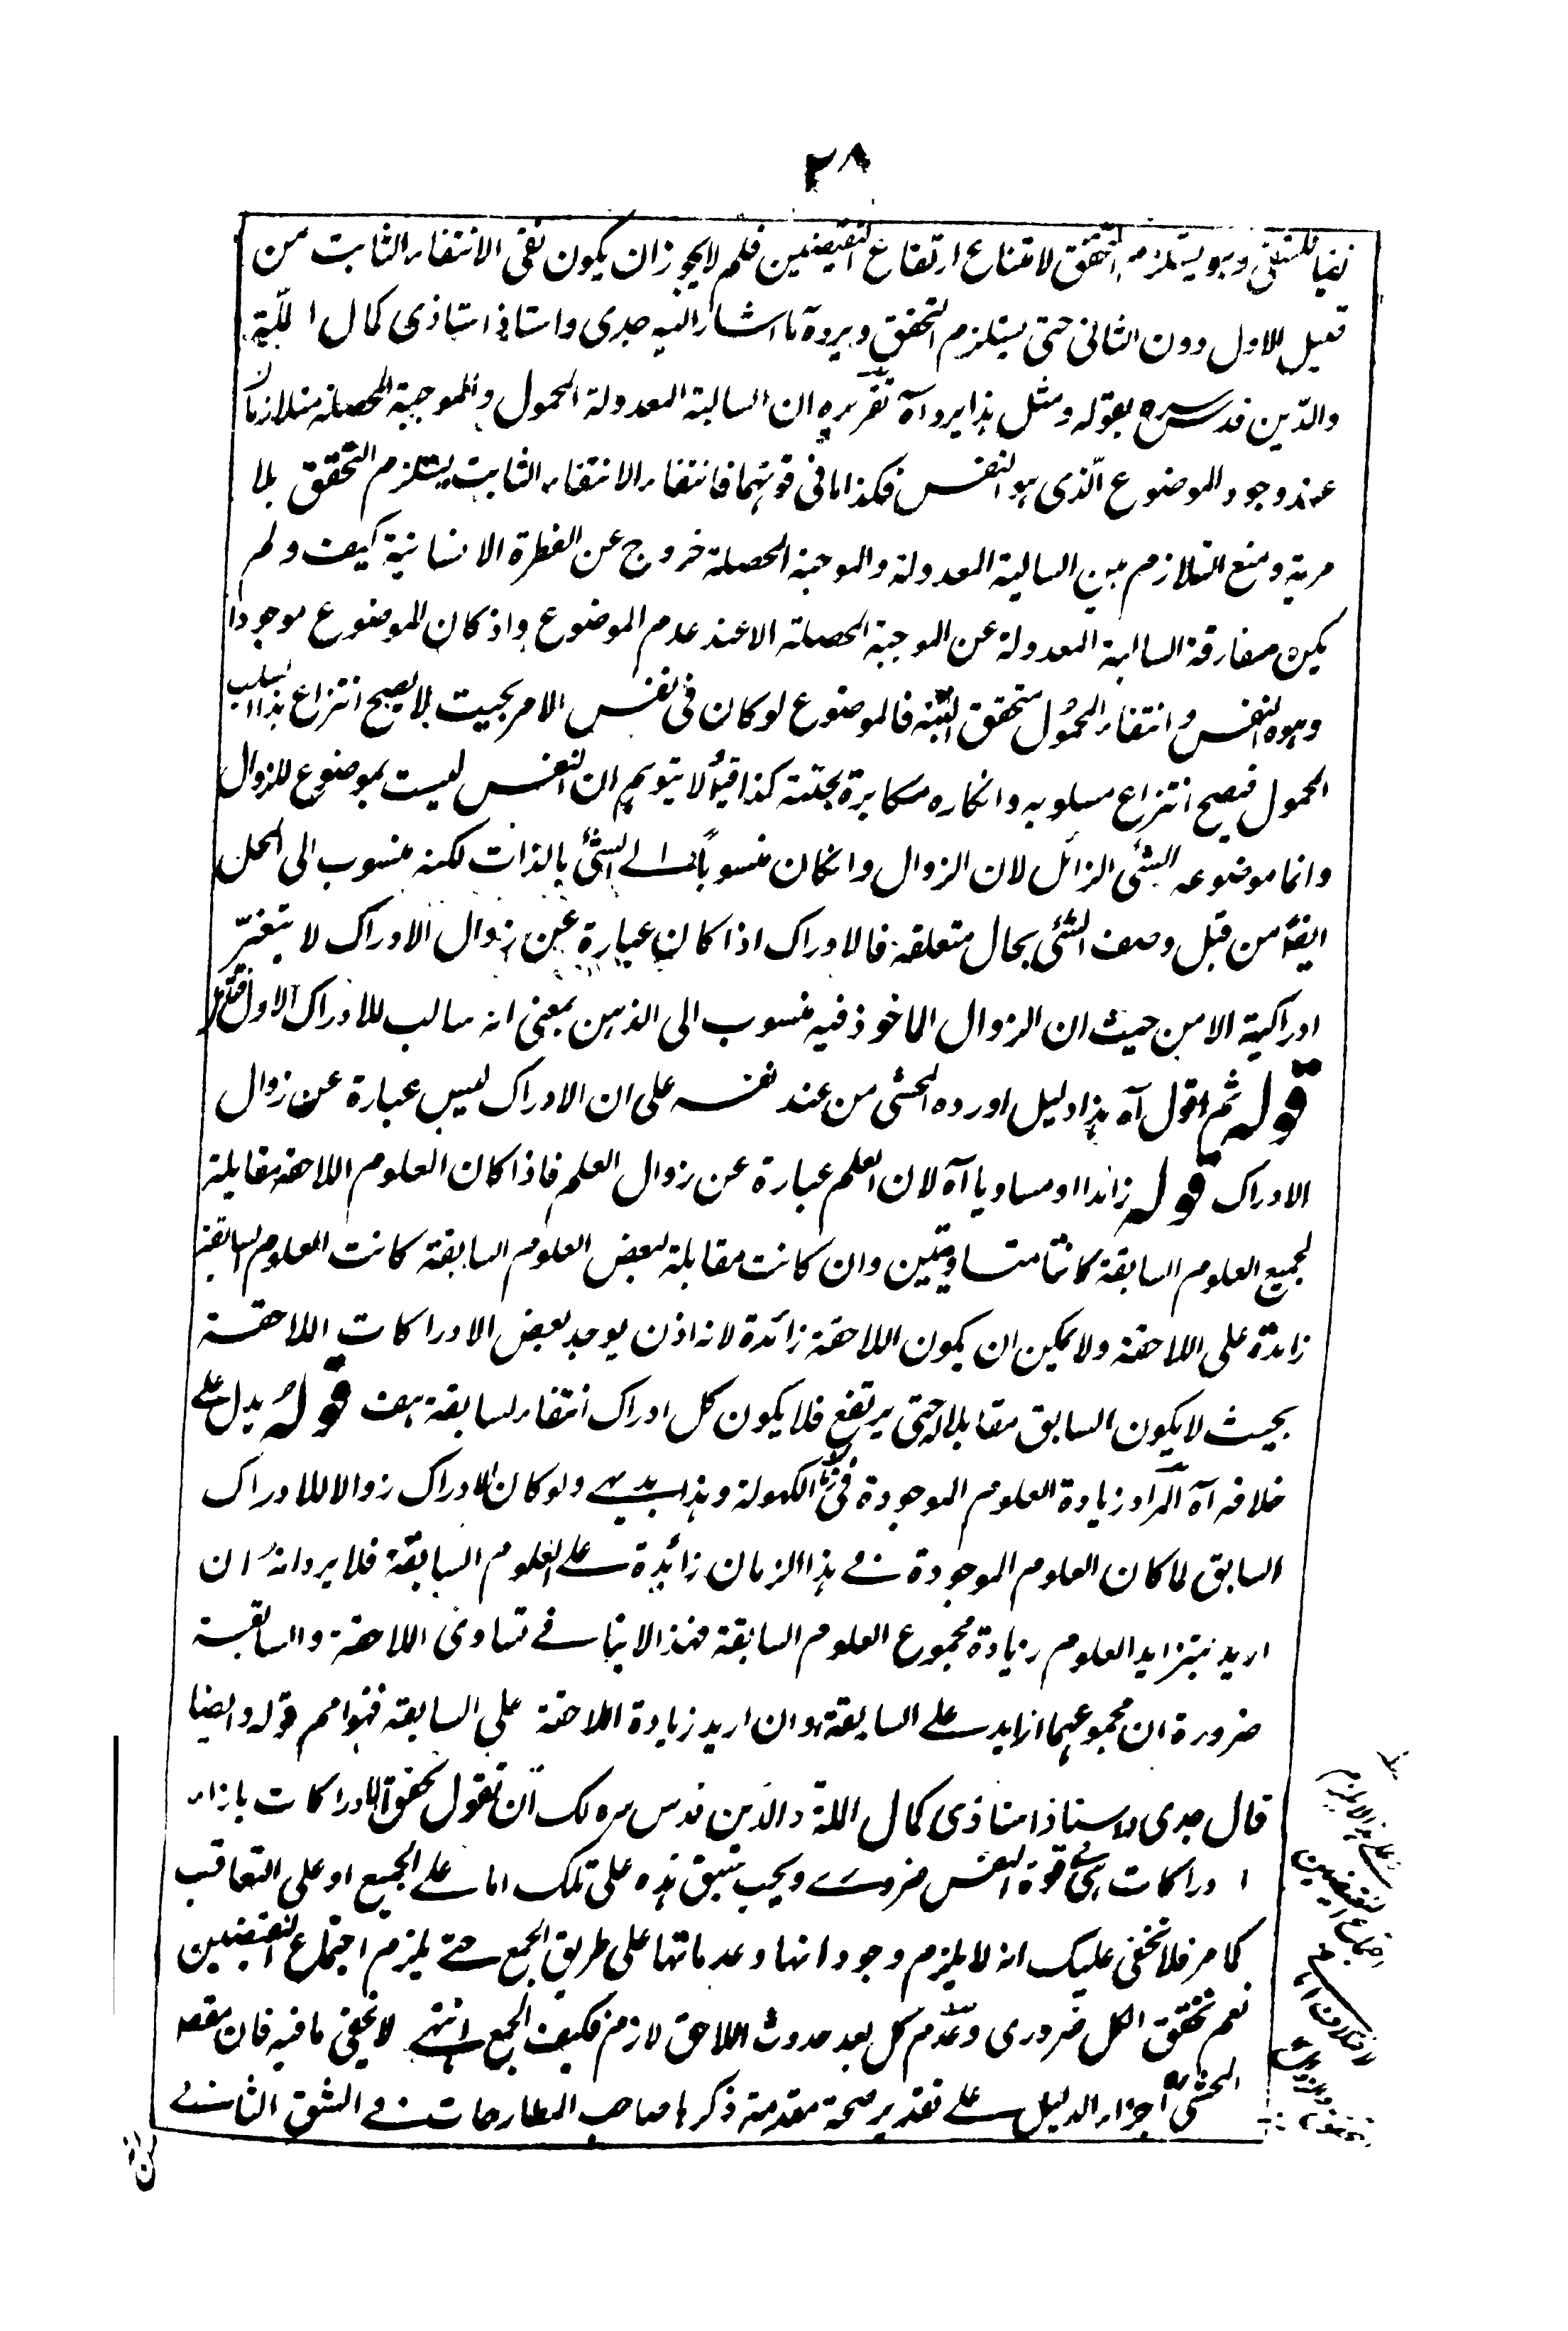 ٢٨
نفيا للمنفي وهو يستلزم التحقق لامتناع ارتفاع النقيضين فلم لا يجوز ان يكون نفى الانتفاء الثابت من
قبيل الاول دون الثانى حتى يستلزم التحقق ويرده ما اشار اليه جدى واستاذ استاذى كمال الملّة
والدّين قدس سره بقوله ومثل هذا يرد آه تقريره ان السالبة المعدولة المحمول والموجبة المحصلة متلازمان
عند وجود الموضوع الّذى هو النفس فكذا ما فى قوتهما فانتفاء الانتفاء الثابت يستلزم التحقق بلا
مرية ومنع التلازم بين السالبة المعدولة والموجبة المحصلة خروج عن الفطرة الانسانية كيف ولم
يكن مفارقة السالبة المعدولة عن الموجبة المحصلة الا عند عدم الموضوع واذ كان الموضوع موجودا
وهو النفس وانتفاء المحمول متحقق البتة فالموضوع لو كان فى نفس الامر بحيث لا يصح انتزاع هذا السلب
المحمول فيصح انتزاع مسلوبه وانكاره مكابرة بحتة كذا قيل لا يتوهم ان النفس ليست بموضوع للزوال
وانما موضوعه الشئ الزائل لان الزوال وانكان منسوباً الى الشئ بالذات لكنه منسوب الى المحل
ايضًا من قبل وصف الشئ بحال متعلقه فالادراك اذا كان عبارة عن زوال الادراك لا يتغيّر
ادراكية الا من حيث ان الزوال الماخوذ فيه منسوب الى الذهن بمعنى انه سالب للادراك الاول فتأمل
قوله ثم اقول آه هذا دليل اورده المحشى من عند نفسه على ان الادراك ليس عبارة عن زوال
الادراك قوله زائدا او مساويا آه لان العلم عبارة عن زوال العلم فاذا كان العلوم اللاحقة مقابلة
لجميع العلوم السابقة كانتا متساويتين وان كانت مقابلة لبعض العلوم السابقة كانت العلوم السابقة
زايدة على اللاحقة ولا يمكن ان يكون اللاحقة زائدة لانه اذن يوجد بعض الادراكات اللاحقة
بحيث لا يكون السابق مقابلا له حتى يرتفع فلا يكون كل ادراك انتفاء لسابقه هف قوله يدل على
خلافه آه المراد زيادة العلوم الموجودة فى زمان الكهولة وهذا بديهى ولو كان الادراك زوالا للادراك
السابق لما كان العلوم الموجودة فى هذا الزمان زائدة على العلوم السابقة فلا يرد انه ان
اريد بتزايد العلوم زيادة مجموع العلوم السابقة فهذا لا ينافى تساوى اللاحقة والسابقة
ضرورة ان مجموعهما ازيد على السابقة وان اريد زيادة اللاحقة على السابقة فهو امم قوله وايضا
قال جدى واستاذ استاذى كمال الملة والدين قدس سره لك ان تقول تحقق الادراكات بازاء
ادراكات هى فى قوة النفس ضرورى ويجب سبق هذه على تلك اما على الجميع او على التعاقب
كما مر فلا يخفى عليك انه لا يلزم وجوداتها وعدماتها على طريق الجمع حتى يلزم اجتماع النقيضين
نعم تحقق الكل ضرورى وعدم كل بعد حدوث اللاحق لازم فكيف الجمع انتهى لا يخفى ما فيه فان مقصد
المحشى اجزاء الدليل على تقدير صحة مقدمة ذكرها صاحب المطارحات فى الشق الثانى